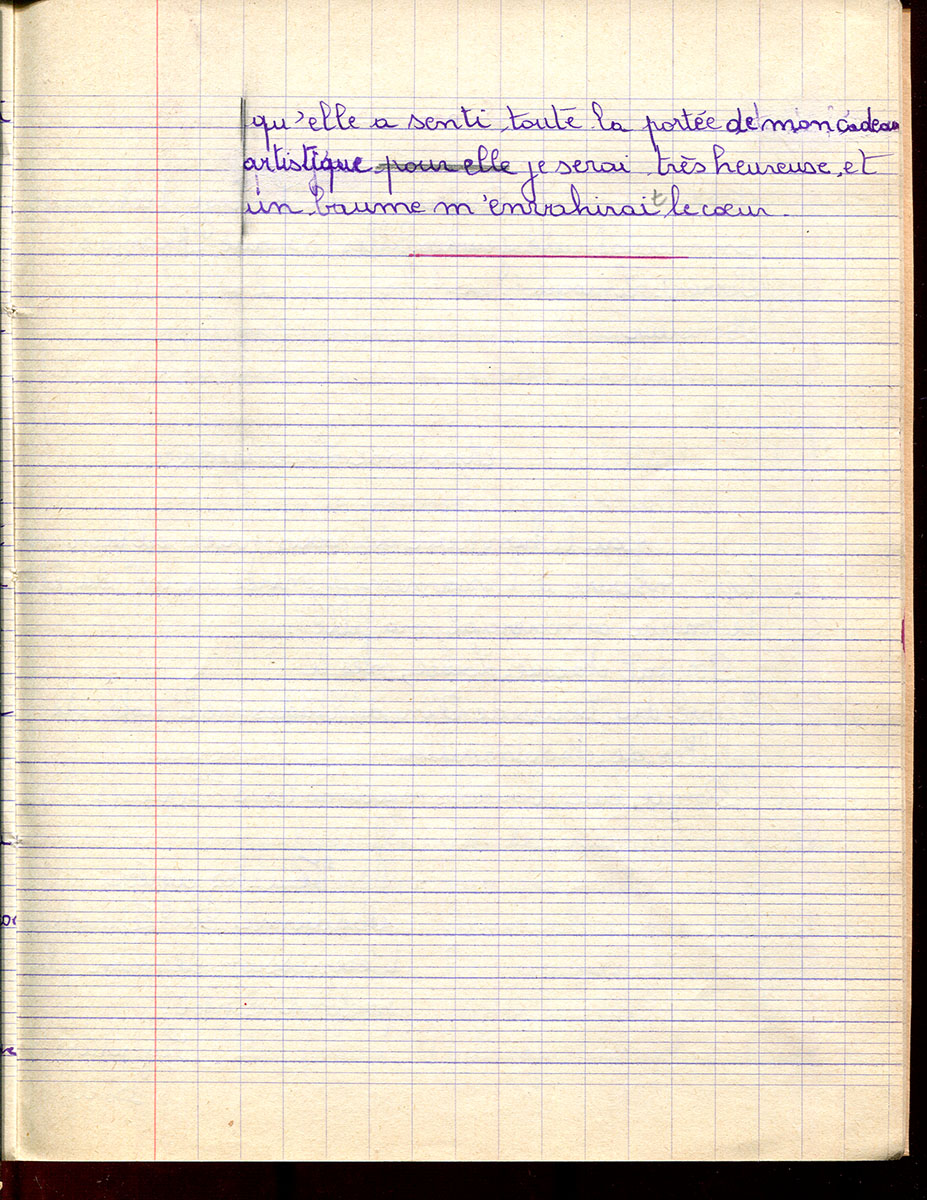 qu'elle a senti toute la portée de mon cadeau
artistique pour elle je serai très heureuse, et
un baume m'envahirait le cœur.